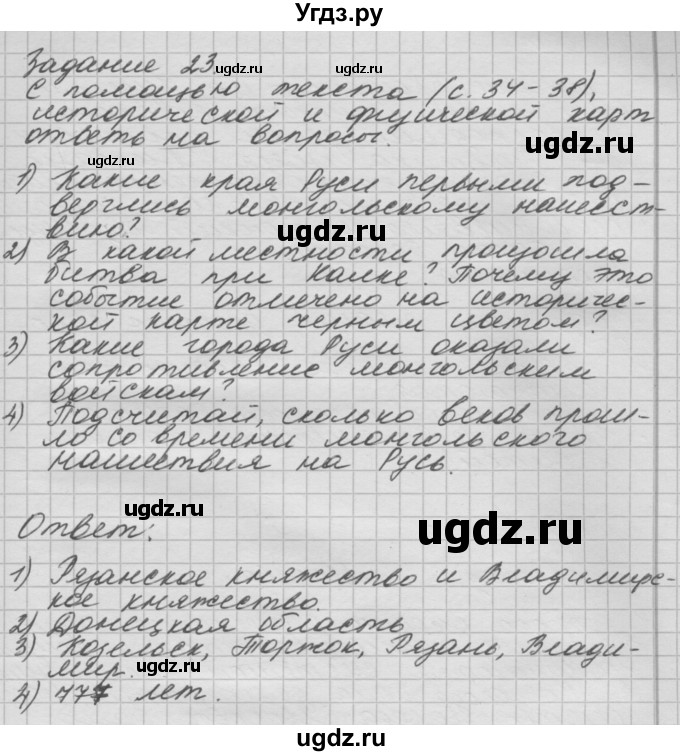 Угдз.ру
Задание 23
ugdz.ru ugdz.ru
С помощью текста (с. 34-38),
исторической и физической карт
ответь на вопросы.
ugdz.ru
ugdz.ru
1) Какие края Руси первыми под-
верглись монгольскому нашест-
вию?
ugdz.ru
2) В какой местности произошла
битва при Калке? Почему это
событие отмечено на историчес-
кой карте черным цветом?
ugdz.ru
3) Какие города Руси оказали
сопротивление монгольским
войскам?
4) Подсчитай, сколько веков прош-
ло со времени монгольского
нашествия на Русь.
ugdz.ru
ugdz.ru
Ответ:
1) Рязанское княжество и Владимирс-
кое княжество.
2) Донецкая область
3) Козельск, Торжок, Рязань, Влади-
мир.
ugdz.ru
4) 777 лет.
ugdz.ru
ugdz.ru